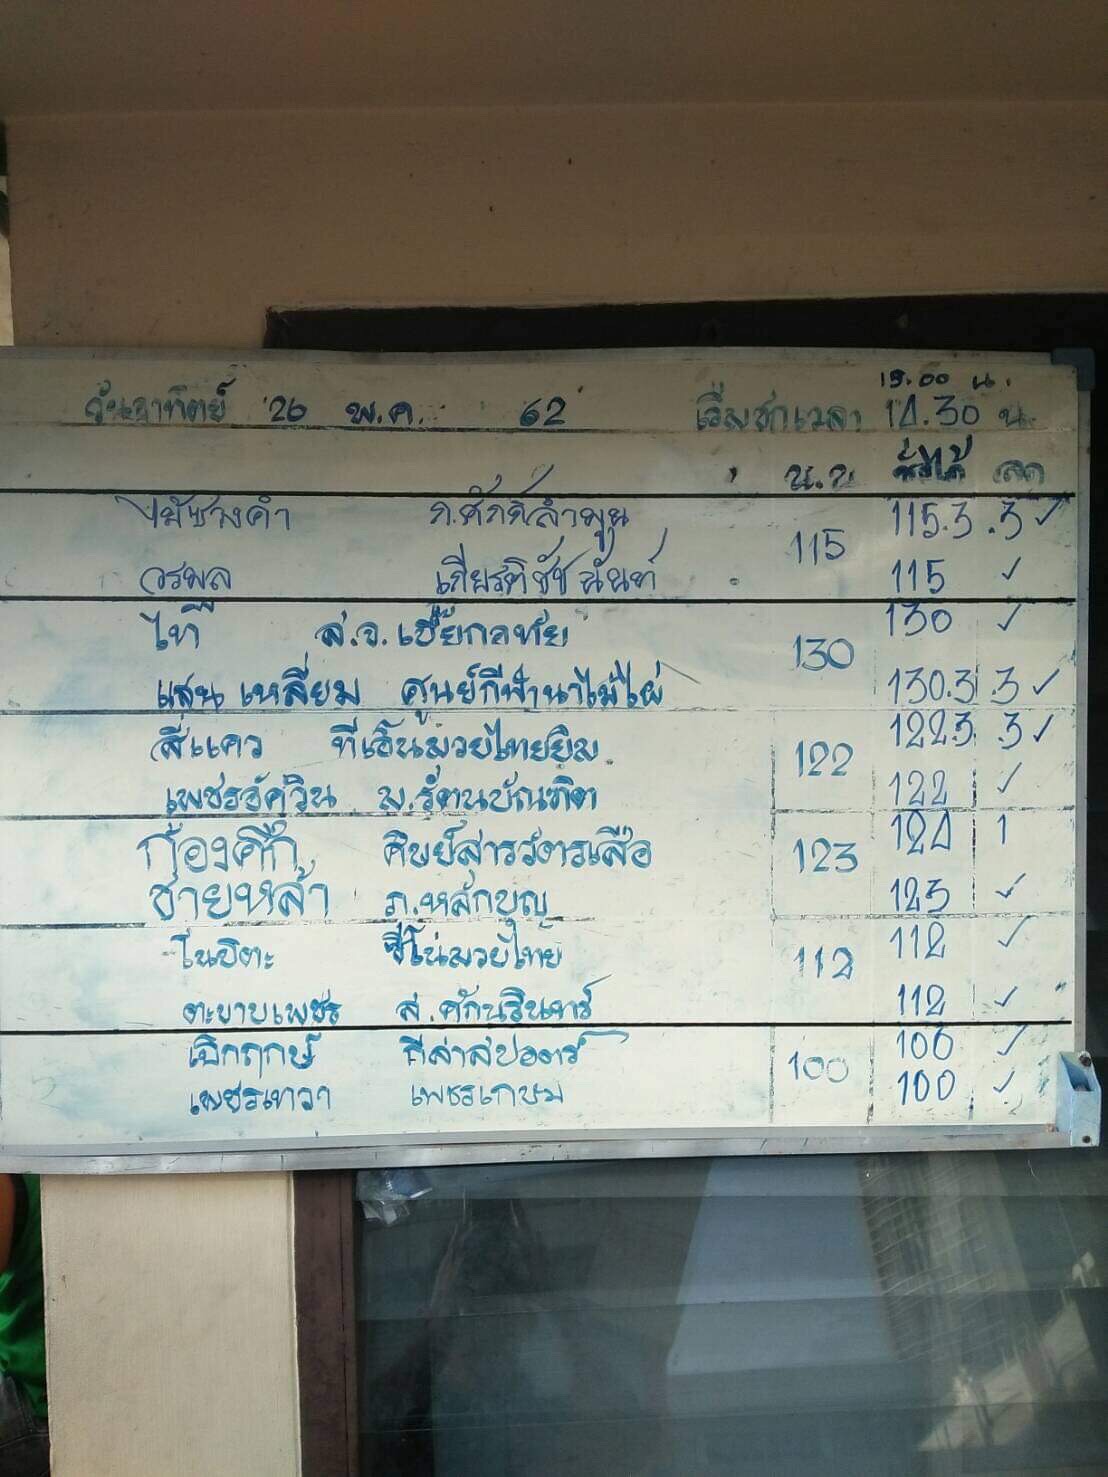 15.00 น.
วันอาทิตย์ 26 พ.ค. 62 เริ่มชกเวลา 14.30 น.
น.น. ชั่งได้ ลด
ไม้ซางคำ ภ.ศักดิ์ลำพูน 115 115.3 .3 ✓
วรพล เกียรติชัชนันท์ 115 ✓
ไท ส.จ.เชี้ยกลทัย 130 130 ✓
แสนเหลี่ยม ศูนย์กีฬานาไม้ไผ่ 130.3 .3 ✓
สี่แคว ทีเอ็นมวยไทยยิม 122 122.3 .3 ✓
เพชรอัศวิน ม.รัตนบัณฑิต 122 ✓
ก้องศึก ศิษย์สารวัตรเสือ 123 124 1
ชายหล้า ภ.หลักบุญ 123 ✓
โนบิตะ ชีโน่มวยไทย 112 112 ✓
ตะบานเพชร ส.ศักนรินทร์ 112 ✓
เบิกฤกษ์ กีล่าสปอตร์ 100 100 ✓
เพชรเทวา เพชรเกษม 100 ✓